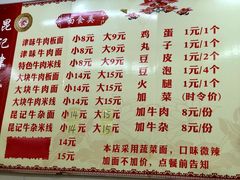 昆记
美食
津味牛肉板面 小8元 大9元
津味牛肉面 小8元 大9元
特色牛肉米线 小8元 大9元
大块牛肉板面 小14元 大15元
大块牛肉面 小14元 大15元
大块牛肉米线 小14元 大15元
昆记牛杂面 小14元 大15元
昆记牛杂米线 小14元 大15元
14元
15元
鸡蛋 1元/1个
丸子 1元/2个
豆皮 1元/1个
豆泡 1元/4个
火腿 1元/1个
加菜 (时令价)
加牛肉 8元/份
加牛杂 8元/份
本店采用蔬菜面，口味微辣
加面不加价，点餐前告知